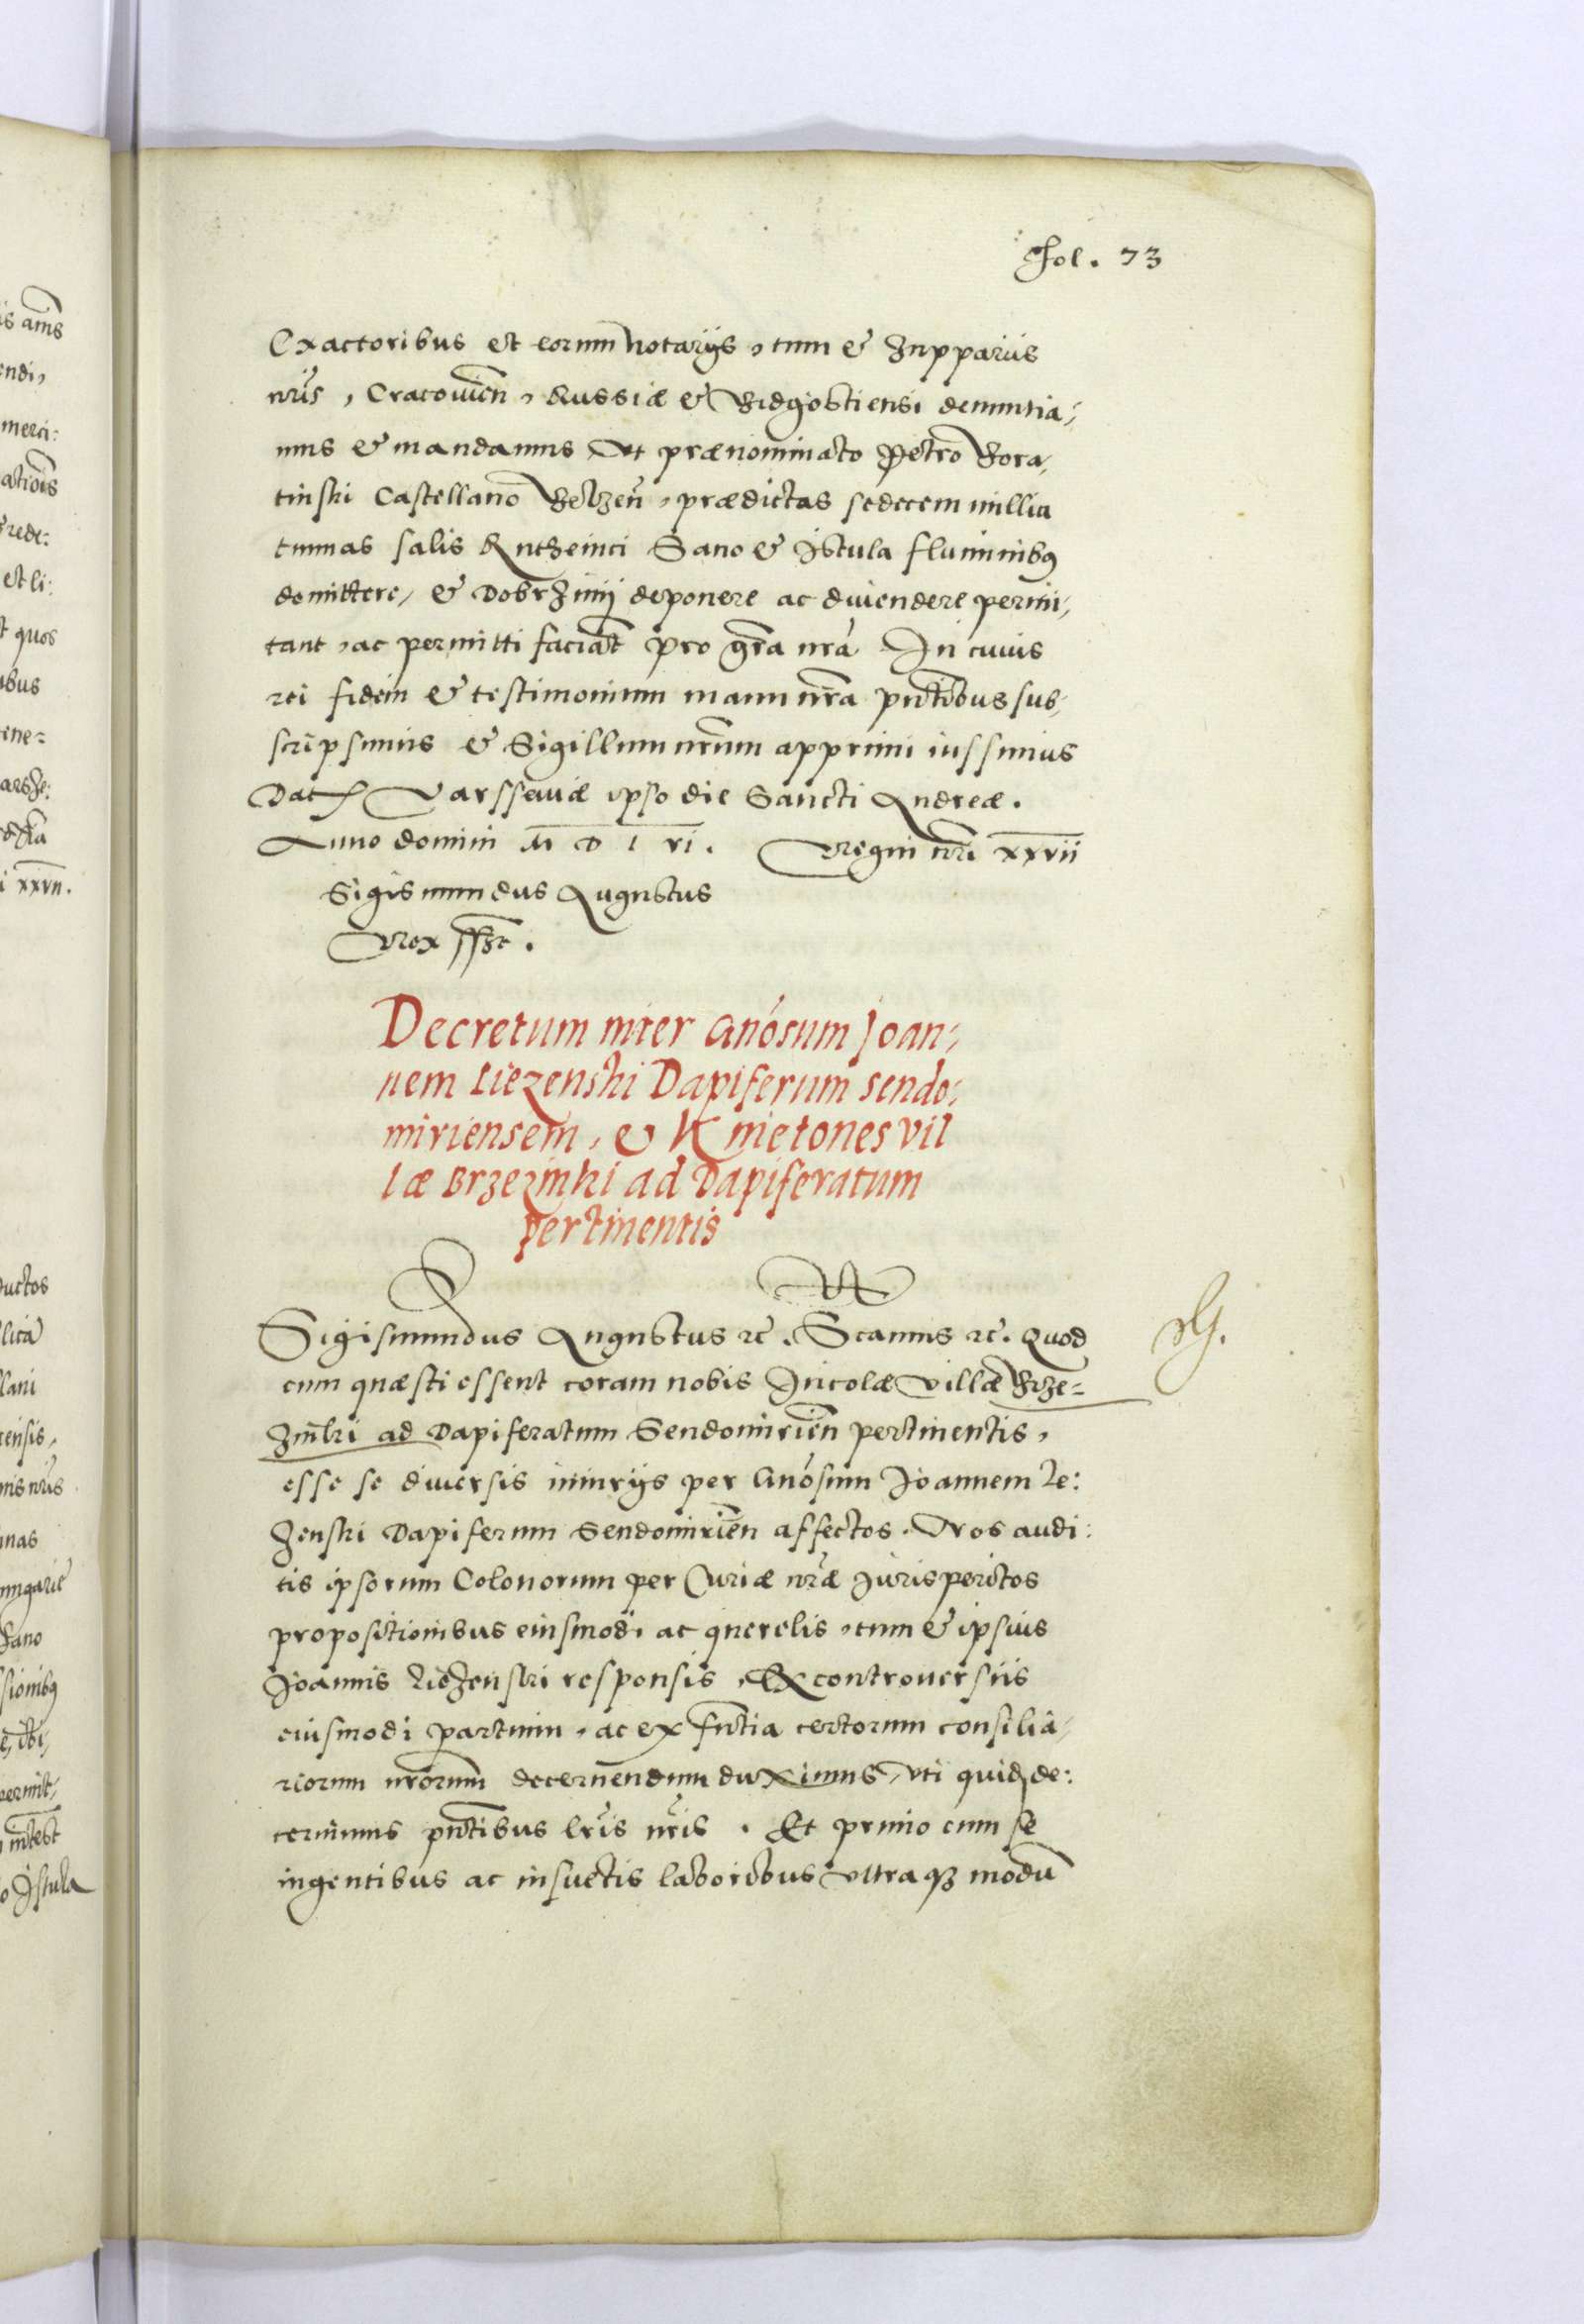 Fol. 73
Exactoribus et eorum Notarijs, tum & Zuppariis
nr̃is, Cracouień, Russiæ & Bidgostiensi denuntia,
mus & mandamus Vt prænominato Petro Bora,
tinski Castellano Belzeń, prædictas sedecem millia
tunnas salis Rutheinci Sano & Istula fluminibꝯ
demittere, & Dobrzinij deponere ac diuendere permi,
tant, ac permitti faciãt pro gr̃a nr̃a In cuius
rei fidem & testimonium manu nr̃a pñtibus sub,
scripsimus & Sigillum nr̃um apprimi iussimus
Dat Varssauiæ ipso die Sancti Andreæ.
Anno domini M D L VI. Regni nr̃i xxvii
Sigismundus Augustus
Rex sszt.
Decretum inter Gñosum Joan,
nem Liezenski Dapiferum sendo,
miriensem, & Kmetones vil
læ Brzezinki ad Dapiferatum
pertinentis
Sigismundus Augustus rc̃. Scamus rc̃. Quod
cum quæsti essent coram nobis Incolæ villæ Brze=
Zinki ad Dapiferatum Sendomirień pertinentis,
esse se diuersis iniurijs per Gñosum Joannem Le:
Zenski Dapiferum Sendomirień affectos. Nos audi:
tis ipsorum Colonorum per Curiæ nr̃æ Jurisperitos
propositionibus eiusmodi ac querelis, tum & ipsius
Joannis LieZenski responsis, Ex controuersiis
eiusmodi partium, ac ex sñtia certorum consilia,
riorum nr̃orum decernendum duximus, vti quidẽ de:
cernimus pñtibus lr̃is nr̃is. Et primo cum se
ingentibus ac insuetis laboribus vltraqꝫ modũ